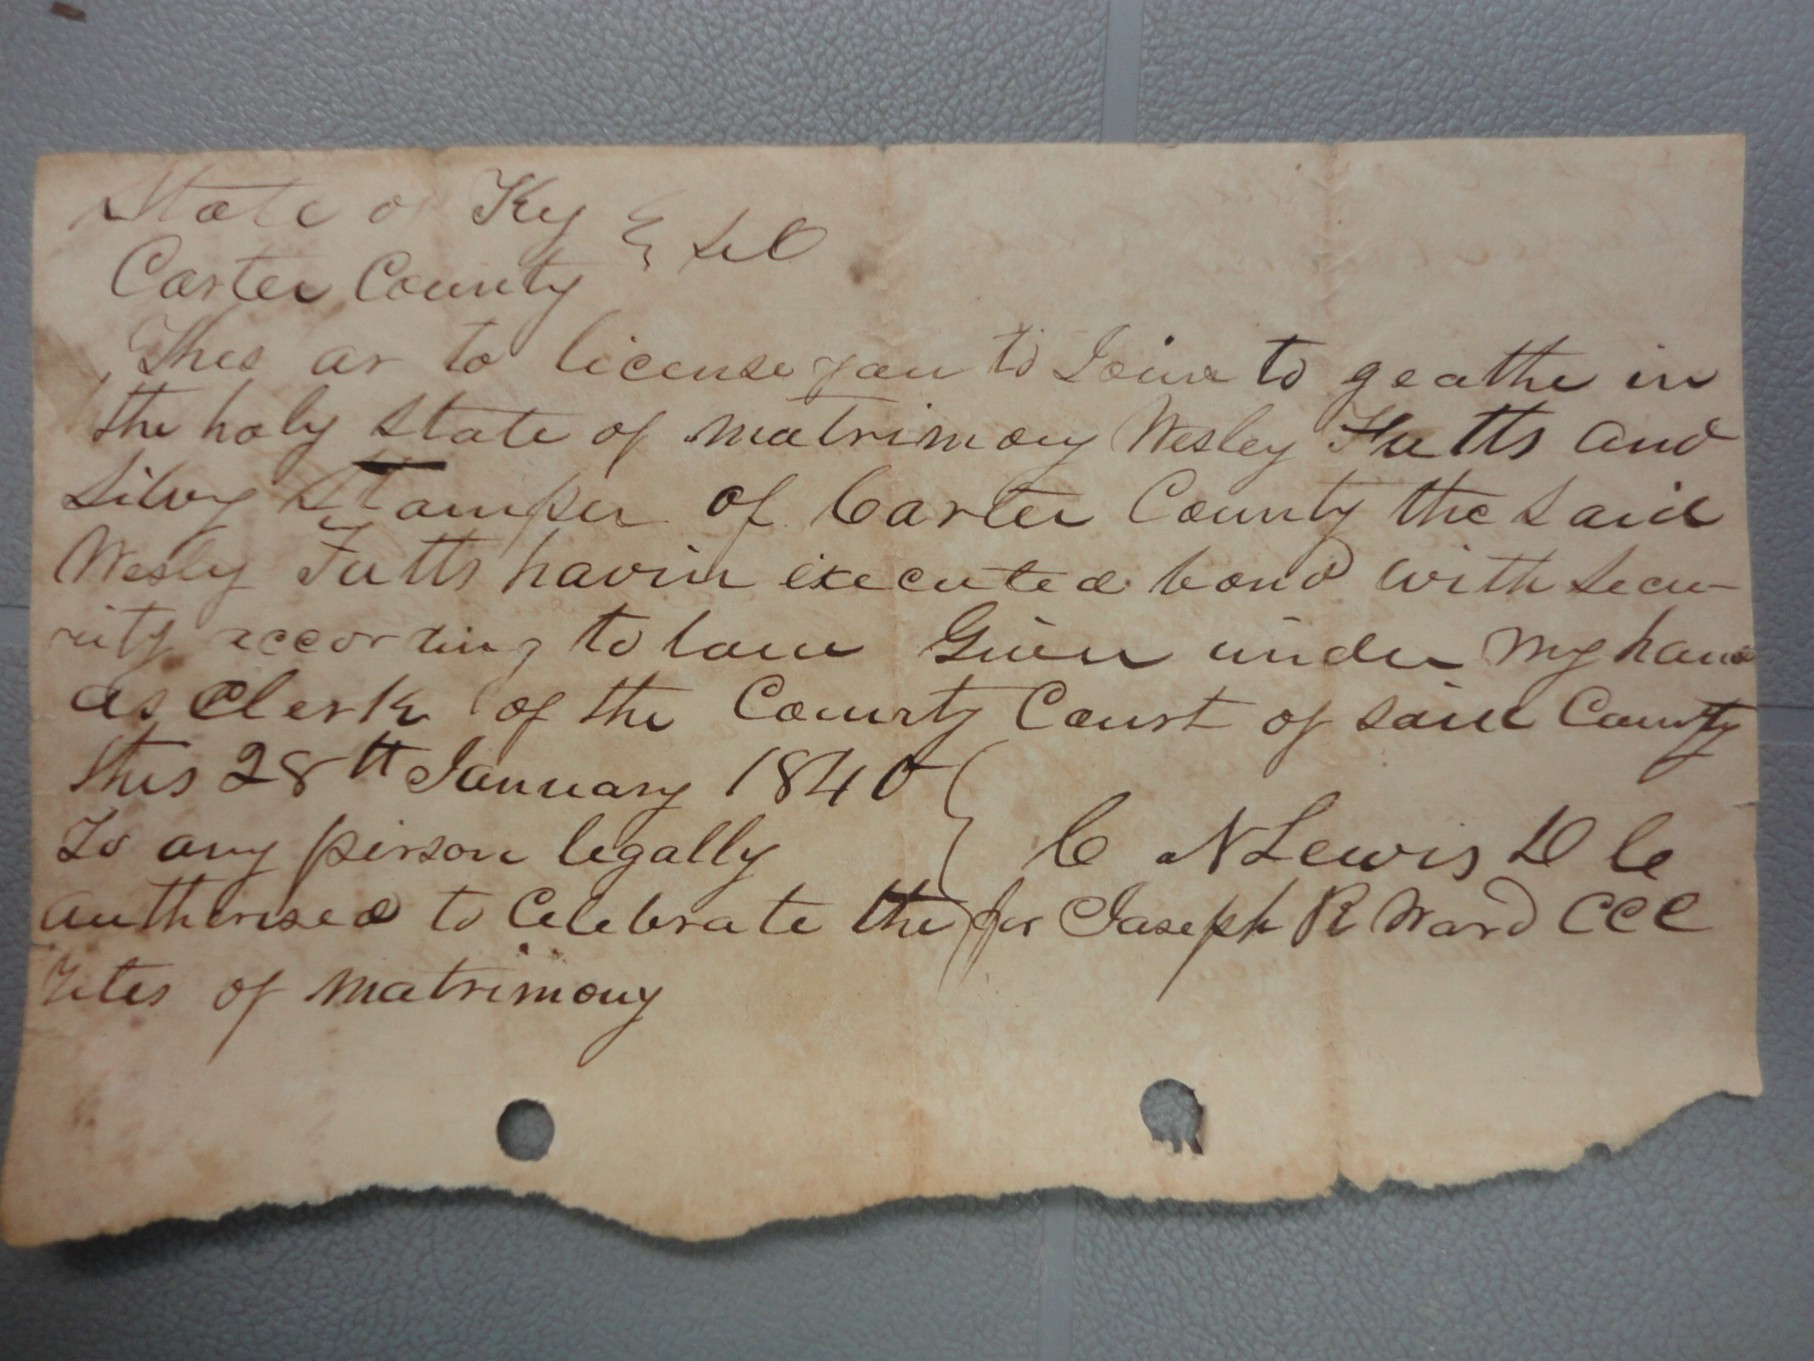 State of Ky
Carter County } Sct
This ar to license you to Join to geathe in
the holy state of matrimony Wesley Fults and
Silvy Stamper of Carter County the said
Wesley Fults havin executed bond with secu-
rity according to law Given under my hand
as Clerk of the County Court of said County
this 28th January 1840
To any person legally } C N Lewis D C
authorised to Celebrate the for Joseph R Ward CCC
rites of matrimony